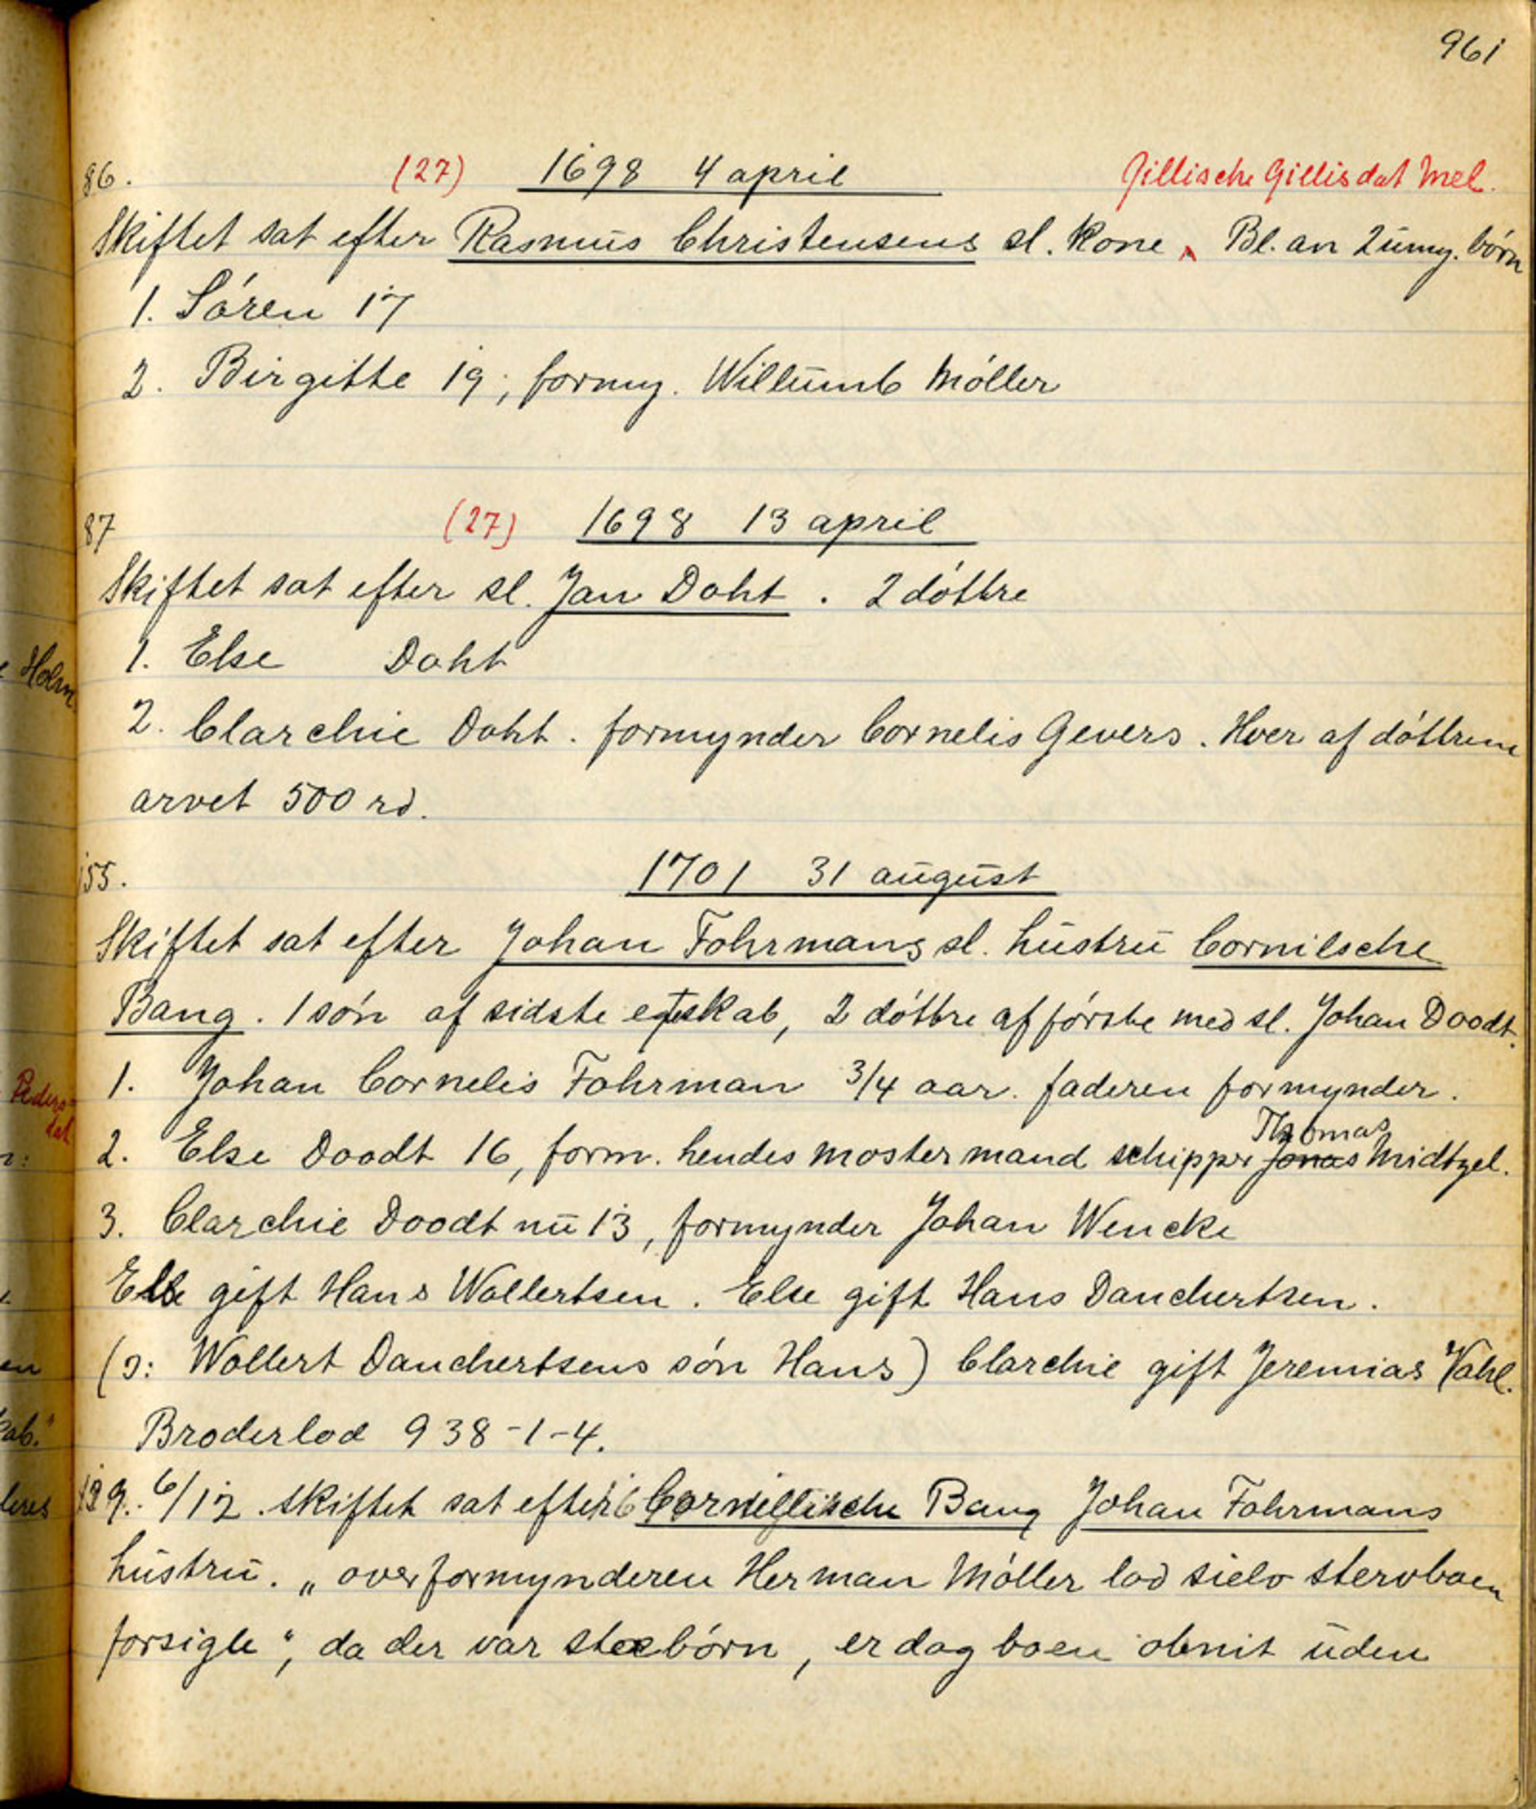 961
86. (27) 1698 4 april Gillische Gillisdat Mel.
Skiftet sat efter Rasmus Christensens sl. kone ^ Bl. an 2 umy. börn
1. Sören 17
2. Birgitte 19, formy. Willumb Möller
87 (27) 1698 13 april
Skiftet sat efter sl. Jan Doht. 2 döttre
1. Else Doht
2. Clarchie Doht. formynder Cornelis Gevers. Hver af döttrene
arvet 500 rd.
155. 1701 31 august
Skiftet sat efter Johan Fohrmans sl. hustru Cornilsche
Bang. 1 sön af sidste egteskab, 2 döttre af förste med sl. Johan Doodt.
1. Johan Cornelis Fohrman 3/4 aar. faderen formynder.
Thomas
2. Else Doodt 16, form. hendes mostermand schipper Jonas Midtzel.
3. Clarchie Doodt nu 13, formynder Johan Wencke
Else gift Hans Wollertsen. Else gift Hans Danchertsen.
(ɔ: Wollert Danchertsens sön Hans) Clarchie gift Jeremias Vahl.
Broderlod 938-1-4.
6/12. skiftet sat efter Bang Johan Fohrmans
hustru. „overformynderen Herman Möller lod sielv stervboen
forsigle“, da der var börn, er dog boen obnit uden
Holm